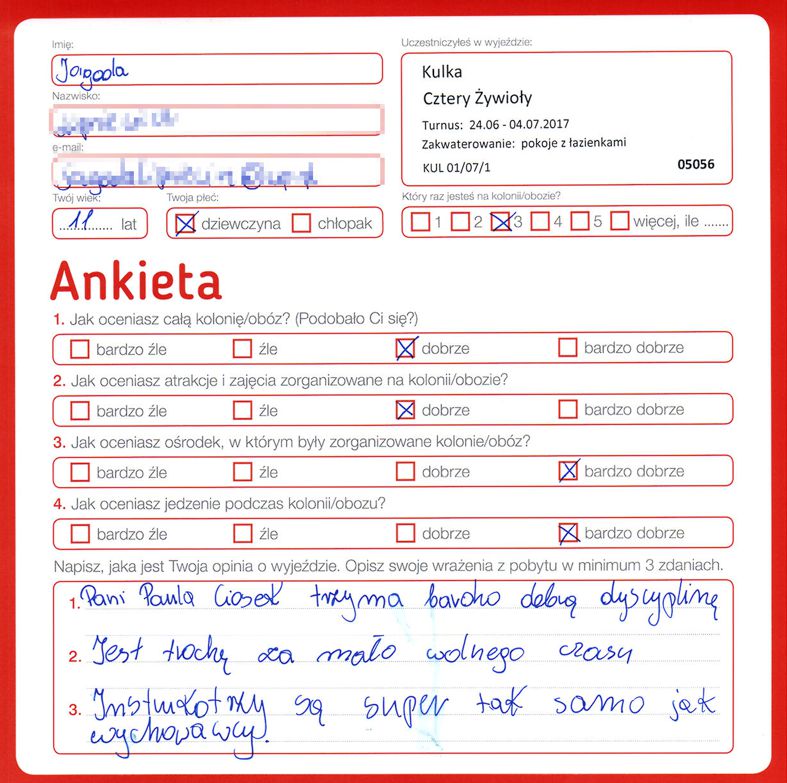 Imię:
Jagoda
Uczestniczyłeś w wyjeździe:
Kulka
Cztery Żywioły
Turnus: 24.06 - 04.07.2017
Zakwaterowanie: pokoje z łazienkami
KUL 01/07/1
05056
Nazwisko:
e-mail:
Twój wiek:
11 lat
Twoja płeć:
dziewczyna chłopak
Który raz jesteś na kolonii/obozie?
1 2 3 4 5 więcej, ile .......
Ankieta
1. Jak oceniasz całą kolonię/obóz? (Podobało Ci się?)
bardzo źle źle dobrze bardzo dobrze
2. Jak oceniasz atrakcje i zajęcia zorganizowane na kolonii/obozie?
bardzo źle źle dobrze bardzo dobrze
3. Jak oceniasz ośrodek, w którym były zorganizowane kolonie/obóz?
bardzo źle źle dobrze bardzo dobrze
4. Jak oceniasz jedzenie podczas kolonii/obozu?
bardzo źle źle dobrze bardzo dobrze
Napisz, jaka jest Twoja opinia o wyjeździe. Opisz swoje wrażenia z pobytu w minimum 3 zdaniach.
1. Pani Paula Ciosek trzyma bardzo dobrą dyscyplinę
2. Jest trochę za mało wolnego czasu
3. Instruktorzy są super tak samo jak
wychowawcy.